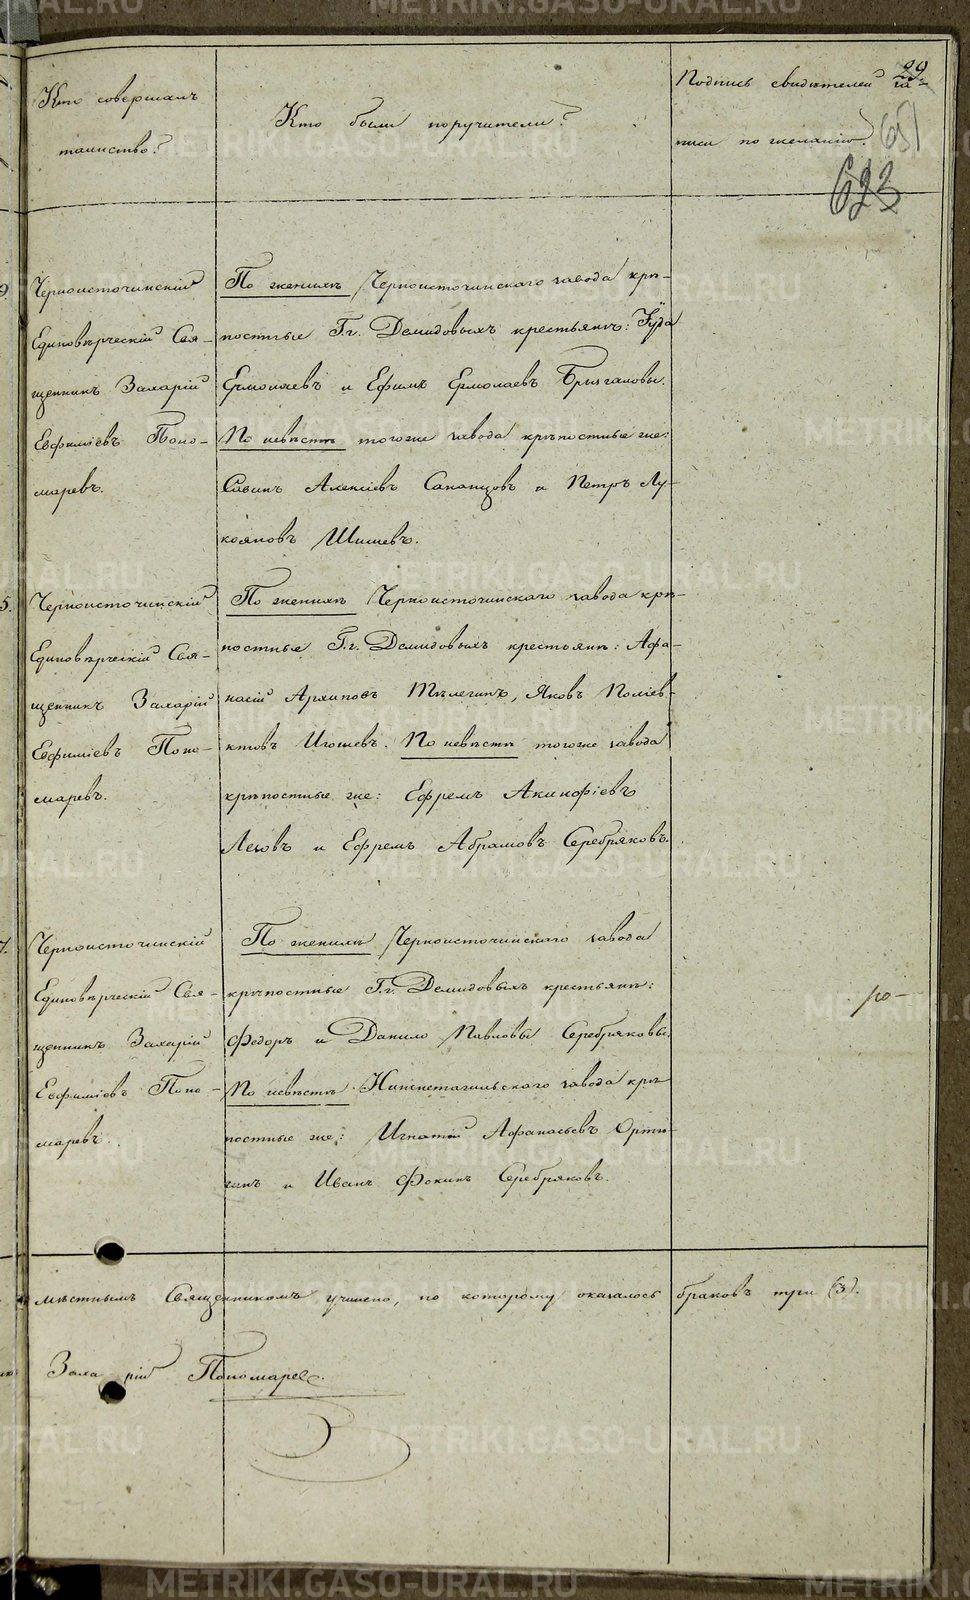 29
651
623
Кто совершалъ
таинство?
Кто были поручители?
Подпись свидѣтелей за-
писи по желанію.
Черноисточинскій
Единовѣрческій Свя-
щенникъ Захарій
Евфиміевъ Поно-
маревъ.
По женихѣ Черноисточинскаго завода крѣ-
постные Гг. Демидовыхъ крестьянѣ: Іуда
Ермолаевъ и Ефимъ Ермолаевъ Брызгаловы.
По невѣстѣ тогоже завода крѣпостные же:
Савинъ Алексіевъ и Петръ Лу-
кояновъ Шишевъ.
5.
Черноисточинскій
Единовѣрческій Свя-
щенникъ Захарій
Евфиміевъ Поно-
маревъ.
По женихѣ Черноисточинскаго завода крѣ-
постные Гг. Демидовыхъ крестьянѣ: Афа-
насій Архиповъ Тѣлегинъ, Яковъ Поліев-
ктовъ Игошевъ. По невѣстѣ тогоже завода
крѣпостные же: Ефремъ Акинфіевъ
Леховъ и Ефремъ Абрамовъ Серебряковъ.
7.
Черноисточинскій
Единовѣрческій Свя-
щенникъ Захарій
Евфиміевъ Поно-
маревъ.
По женихѣ Черноисточинскаго завода
крѣпостные Гг. Демидовыхъ крестьянѣ:
Федоръ и Данило Павловы Серебряковы.
По невѣстѣ Нижнетагильскаго завода крѣ-
постные же: Игнатій Афанасьевъ
и Иванъ Фокинъ Серебряковъ.
мѣстнымъ Священникомъ учинено, по которому оказалось браковъ три (3).
Захарій Пономаревъ.
METRIKI.GASO-URAL.RU